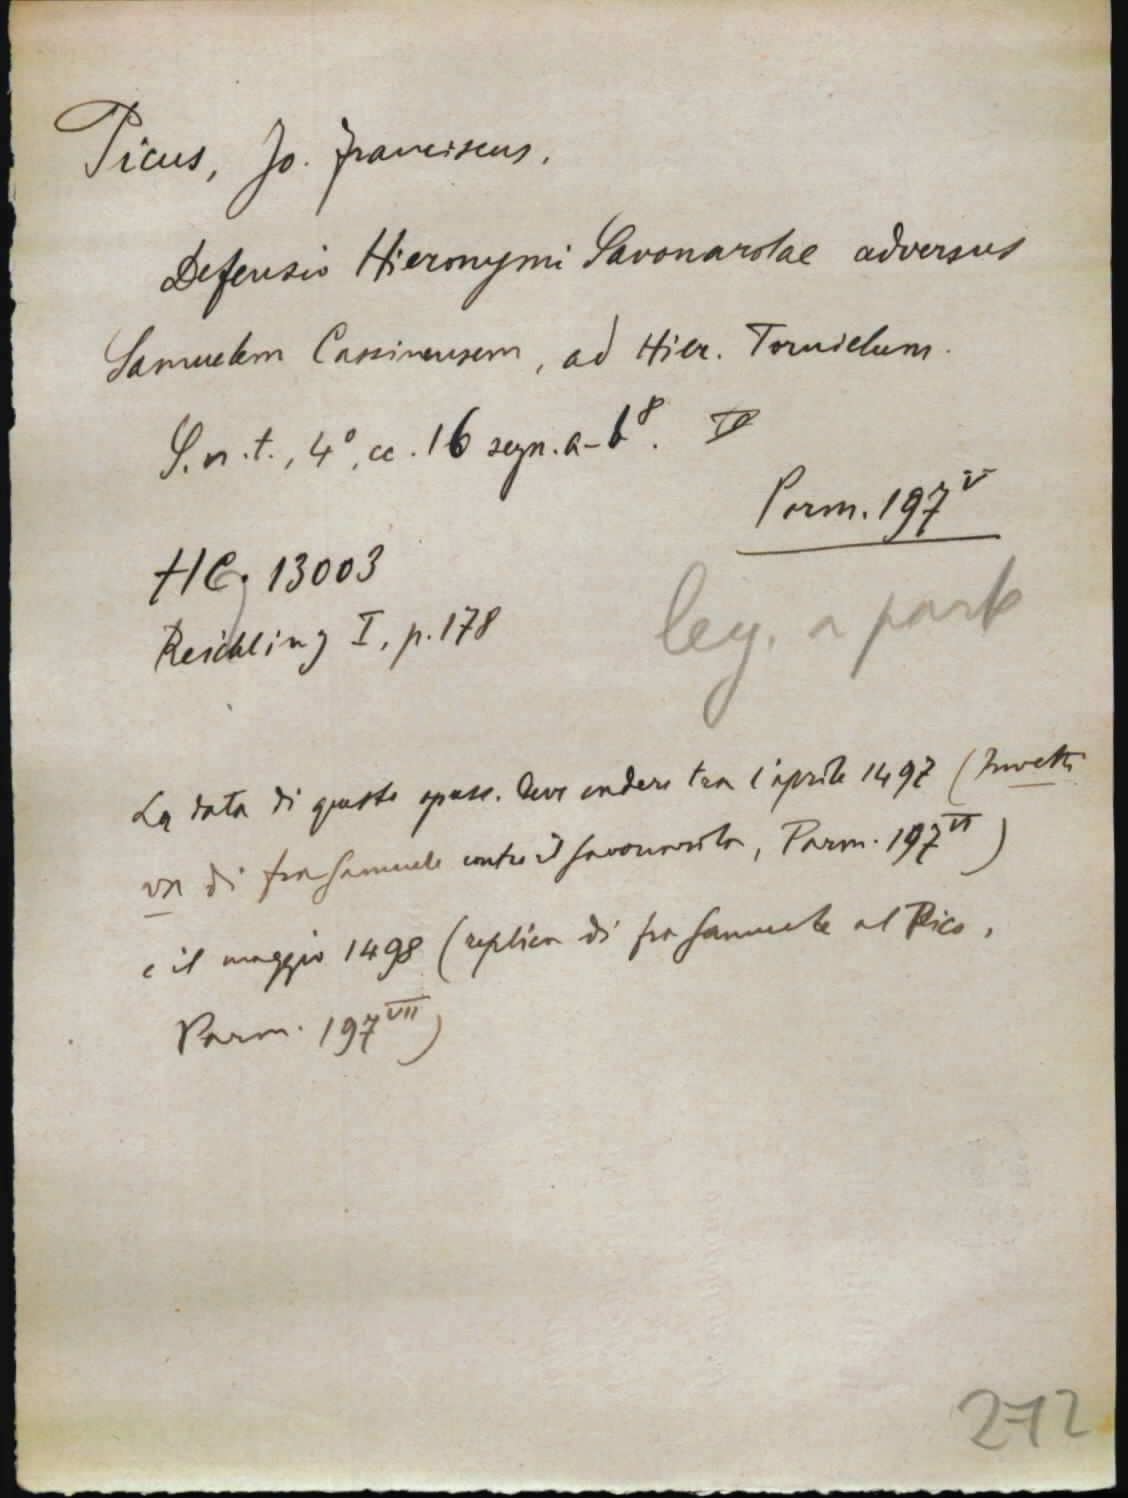 Picus, Jo. Franciscus,
Defensio Hieronymi Savonarolae adversus
Samuelem Cassinensem, ad Hier. Tornielum.
S.n.t., 4°, cc. 16 segn. a-b⁸.
Parm. 197ⱽ
HC 13003
Reichling I, p. 178
leg. a parte
La data di questo opusc. deve cadere tra l'aprile 1497 (Invetti
va di fra Samuele contro il Savonarola, Parm. 197ⱽᴵ)
e il maggio 1498 (replica di fra Samuele al Pico,
Parm. 197ⱽᴵᴵ)
272